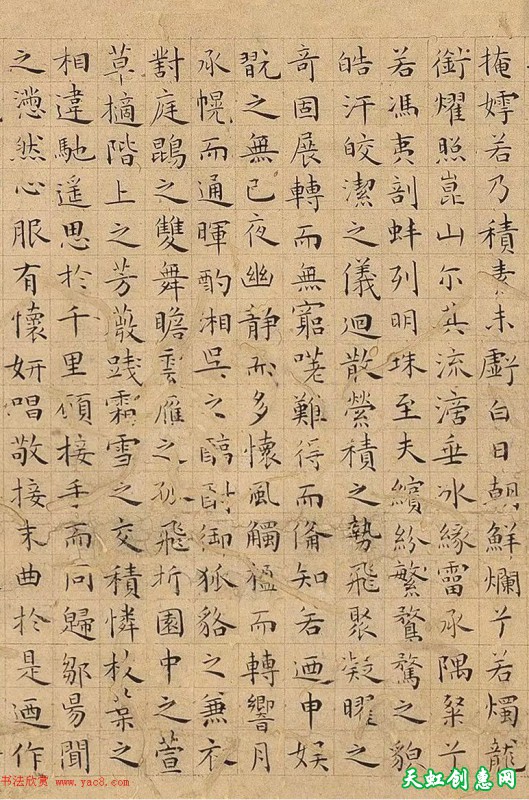 掩嫮若乃積素未虧白日朝鮮爛兮若燭龍
銜燿照崑山尔其流滴垂冰緣霤承隅粲兮
若馮夷剖蚌列明珠至夫繽紛繁騖之貌
皓汗皎潔之儀迴散縈積之勢飛聚凝曜之
奇固展轉而無窮嗟難得而備知若迺申娱
翫之無已夜幽靜而多懷風觸楹而轉響月
承幌而通暉酌湘吳之醇酎御狐貉之兼衣
對庭鵾之雙舞瞻雲雁之孤飛折園中之萱
草摘階上之芳薇踐霜雪之交積憐枝葉之
相違馳遥思於千里願接手而同歸鄒陽聞
之懣然心服有懷妍唱敬接末曲於是迺作
书法欣赏 www.yac8.com
天虹创惠网